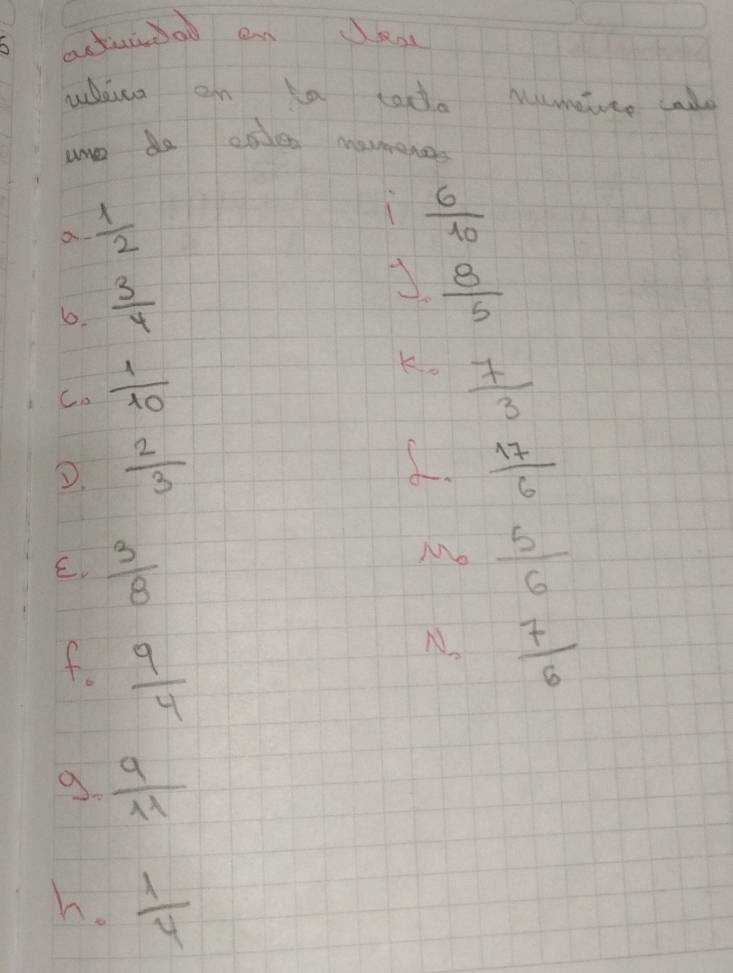 actividad en clase
ubica en la recta numerica cada
uno de estos numeros
a- 1/2
b. 3/4
c. 1/10
D. 2/3
E. 3/8
f. 9/4
g. 9/11
h. 1/4
i 6/10
J. 8/5
K. 7/3
L. 17/6
M. 5/6
N. 7/6